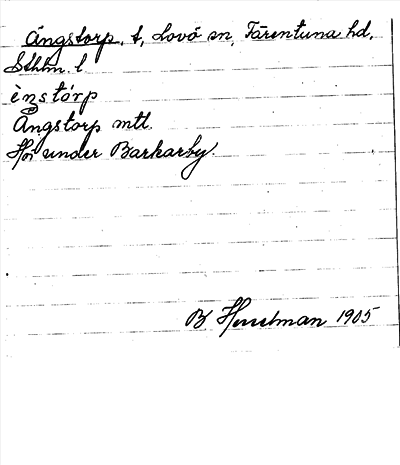 Ängstorp, t, Lovö sn, Färentuna hd,
Sthlm. l
ènstórp
Ängstorp mtl.
Hör under Barkarby.
B Hesselman 1905